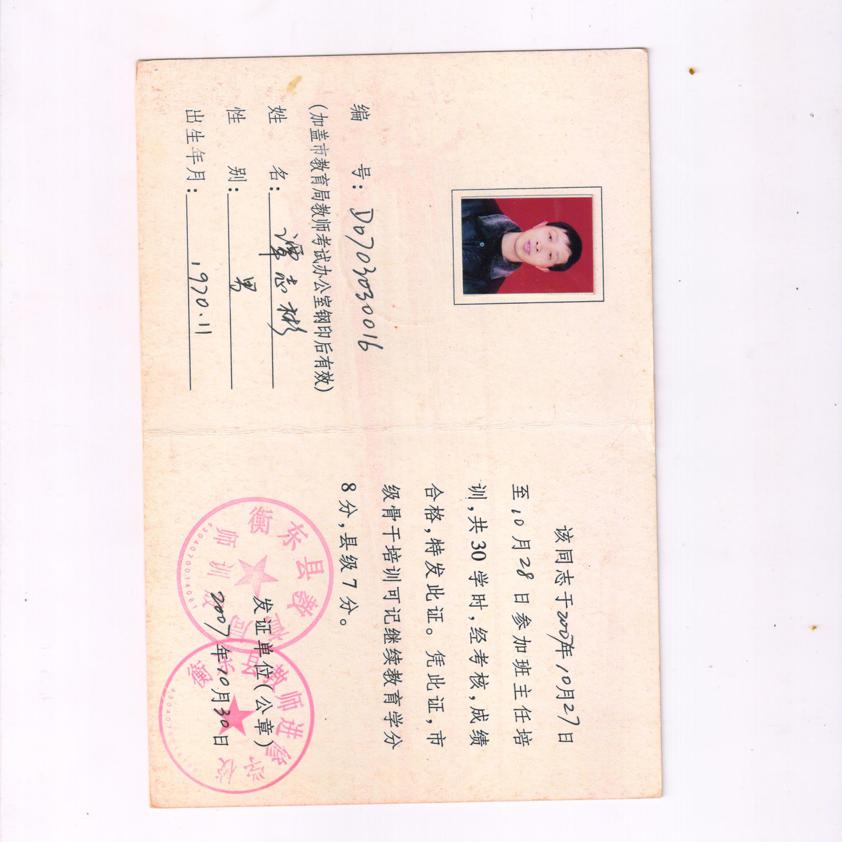 编 号：D0703030016
（加盖市教育局教师考试办公室钢印后有效）
姓 名：谭志彬
性 别：男
出生年月：1970.11
该同志于2007年10月27日
至10月28日参加班主任培
训，共30学时，经考核，成绩
合格，特发此证。凭此证，市
级骨干培训可记继续教育学分
8分，县级7分。
发证单位（公章）
2007年10月30日
衡东县教育局
师训
衡东县教师进修学校